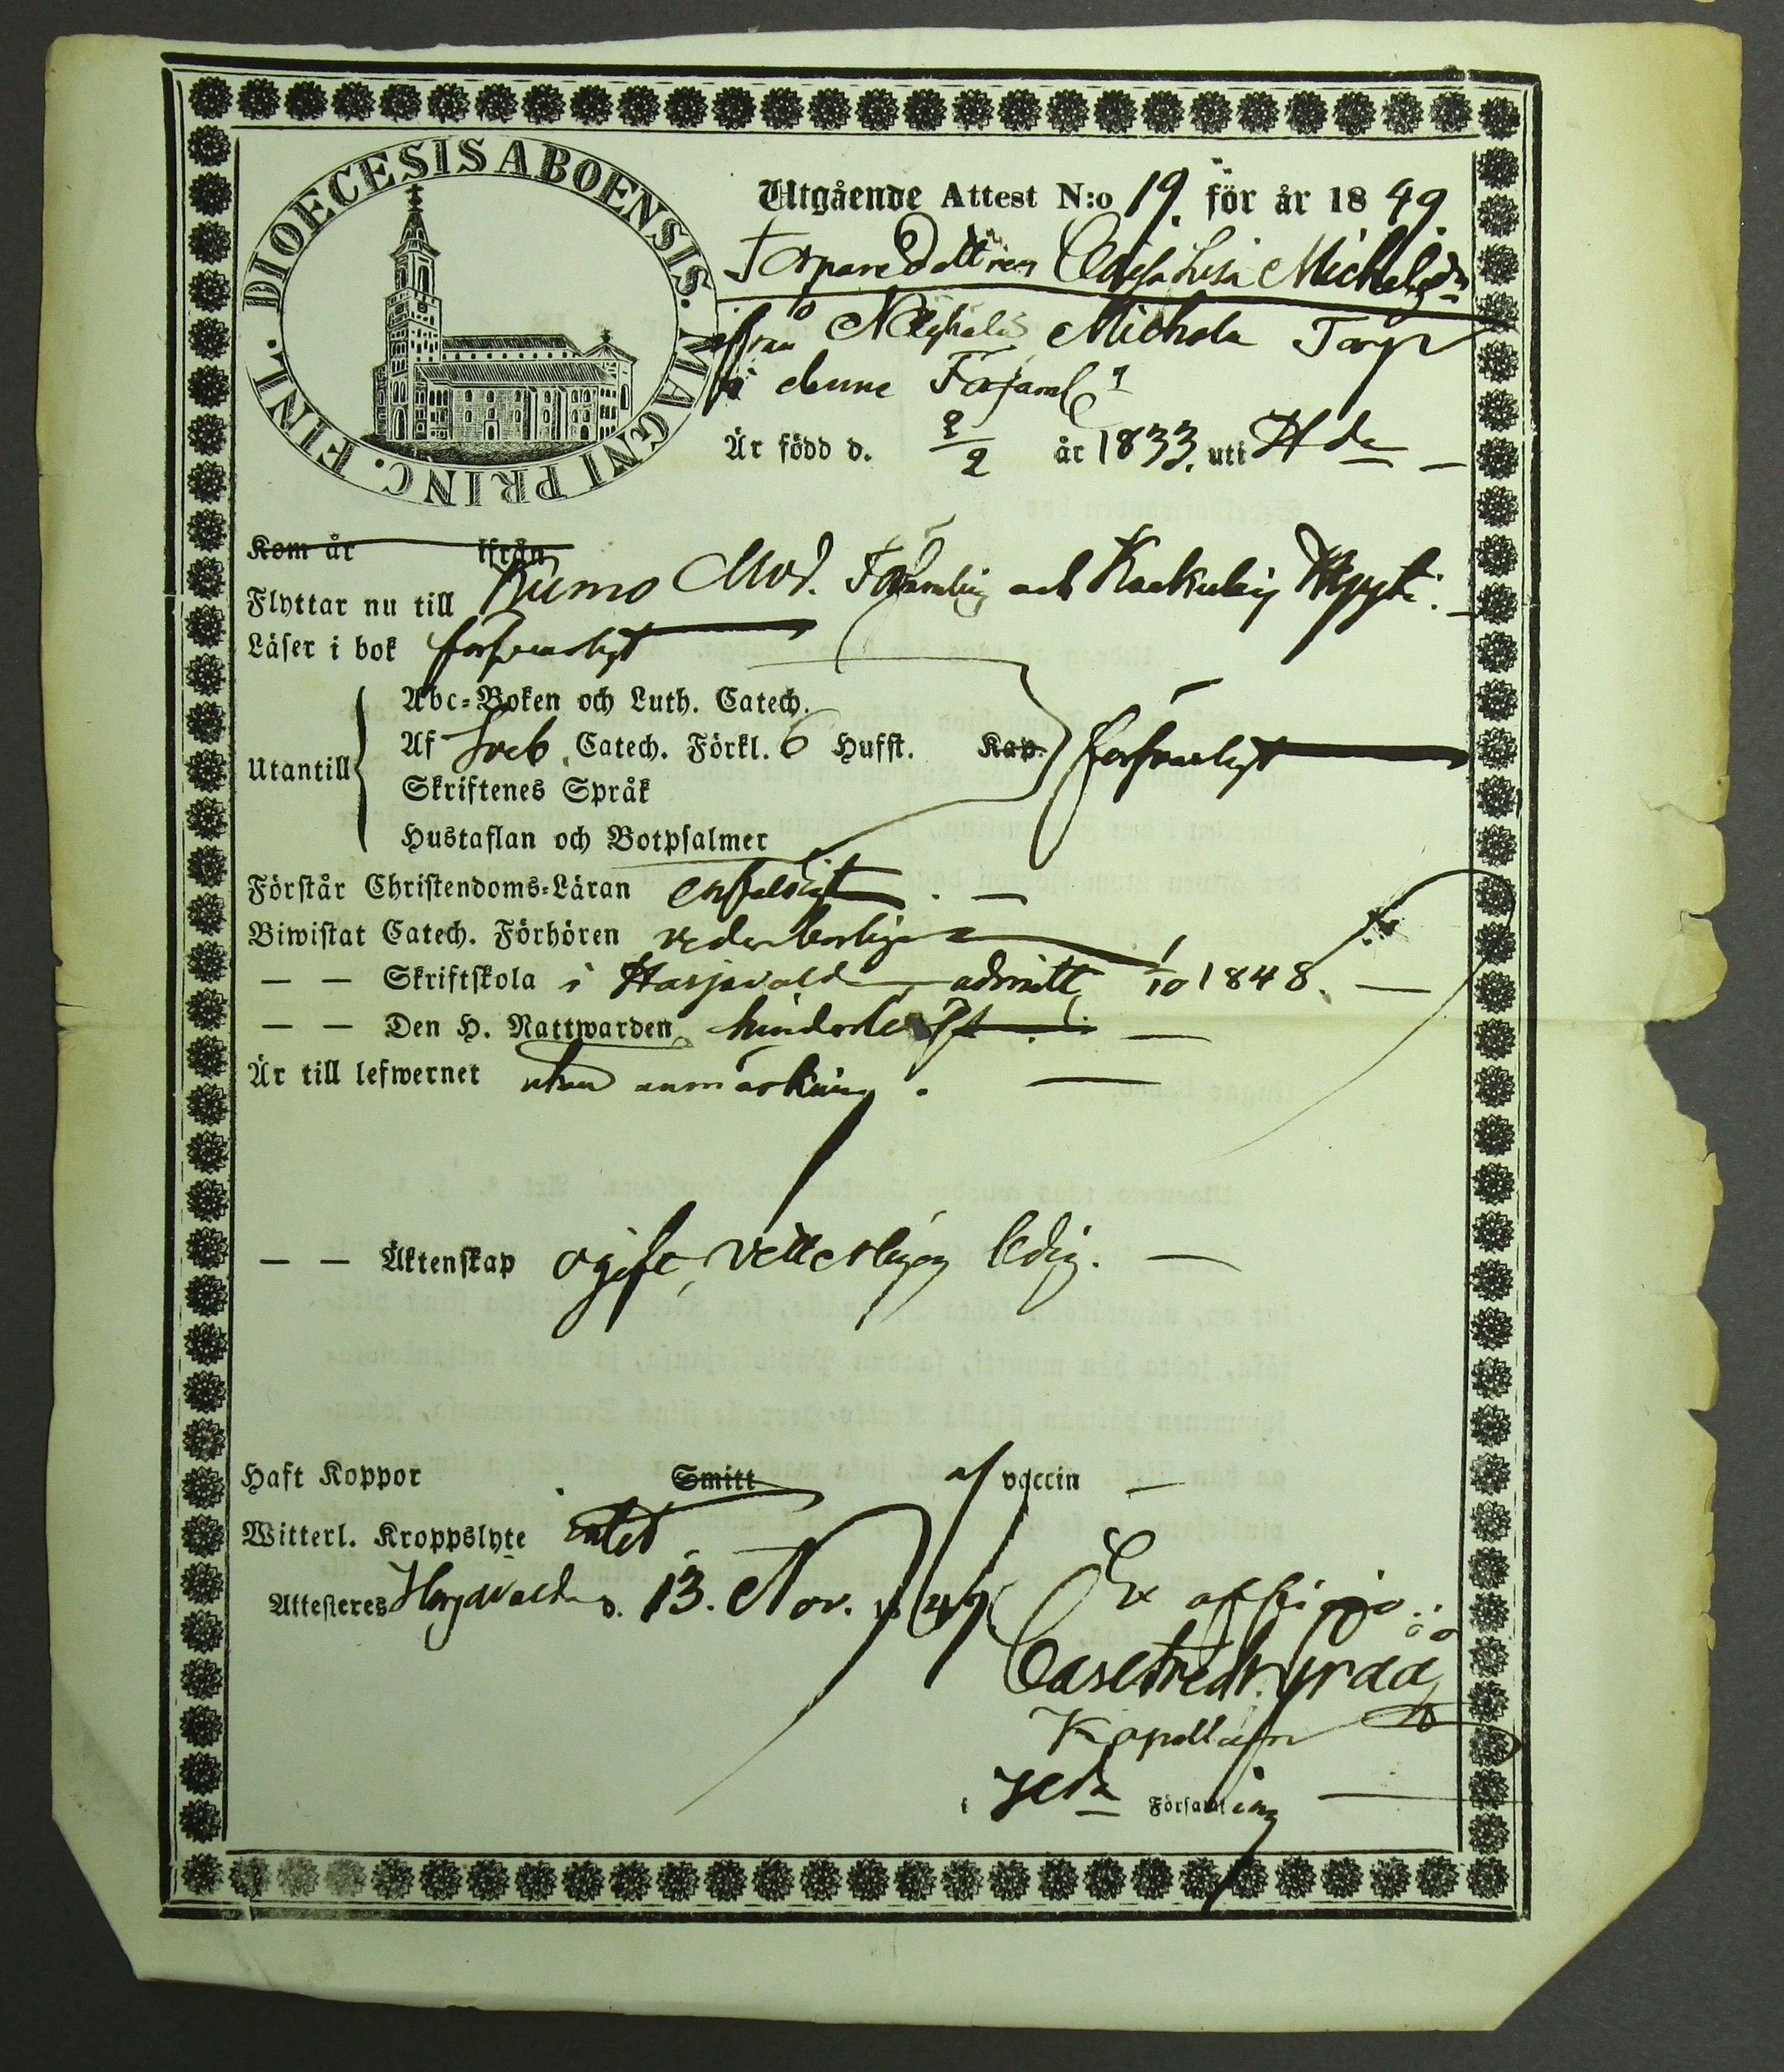 DIOECESIS ABOENSIS. MAGNI PRINC. FINL.
Utgående Attest N:o 19. för år 1849.
Torparedottren Cajsa Lisa Michelsdr
ifrån Michola Torp
i denne Församl
Är född d. 2/2 år 1833. utti Hda
Kom år ifrån
Flyttar nu till Kumo Mod. Församling och Kackulais Hyyti.
Läser i bok försvarligt
Utantill
Abc-Boken och Luth. Catech.
Af Sveb. Catech. Förkl. 6 Hufst. Kap. försvarligt
Skriftenes Språk
Hustaflan och Botpsalmer
Förstår Christendoms-Läran enfaldigt.
Biwistat Catech. Förhören vederbörligen
— — Skriftskola i Harjavalda, admitt. 1/10 1848.
— — Den H. Nattwarden
Är till lefwernet utan anmärkning.
— — Äktenskap ogift, vetterligen ledig.
Haft Koppor Smitt af vaccin
Witterl. Kroppslyte intet
Attesteres Harjavalda d. 13. Nov. 1849
Ex officio
Kapellan
i Hda Församling